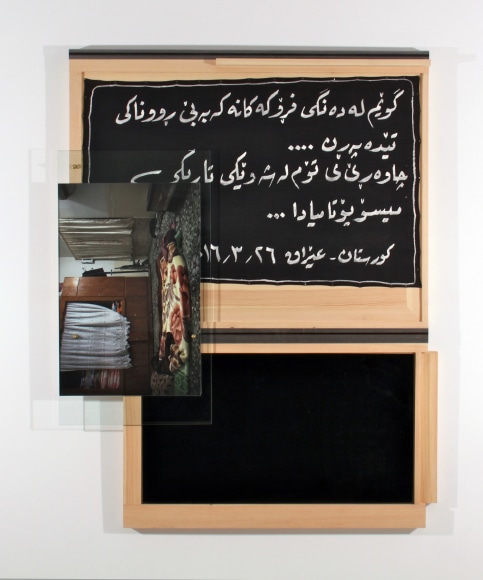 گوێم لە دەنگی فڕۆکەکانە کە بەبێ ڕووناکی
تێدەپەڕن ....
چاوەڕێی تۆم لە شەوێکی تاریکی
میسۆپۆتامیادا ...
کورستان - عێراق ٢٦٫٣٫١٦